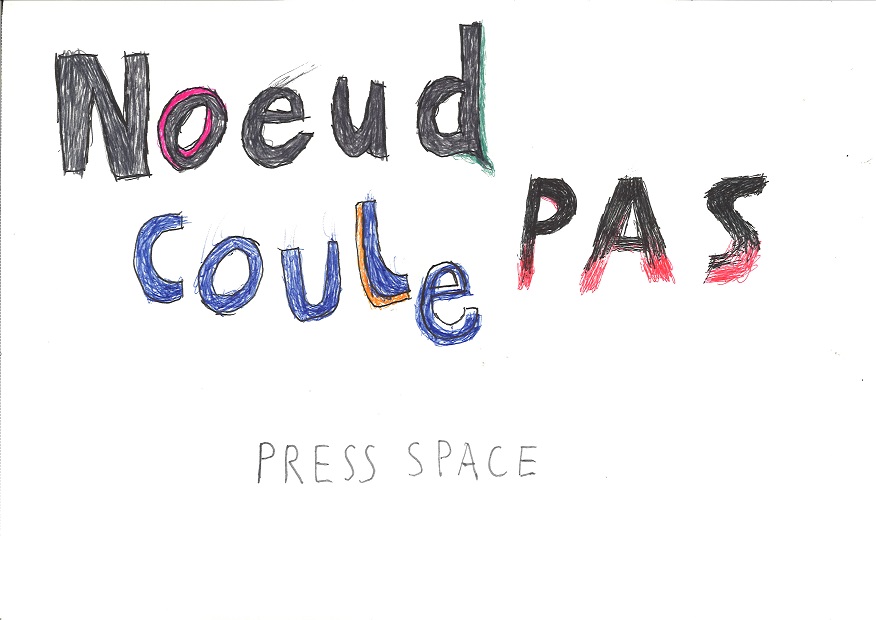 Noeud
COULe PAS
PRESS SPACE